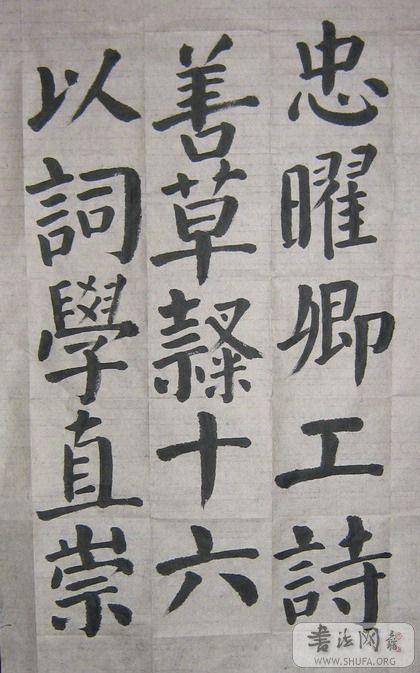 忠曜卿工詩
善草隸十六
以詞學直崇
書法网
WWW.SHUFA.ORG